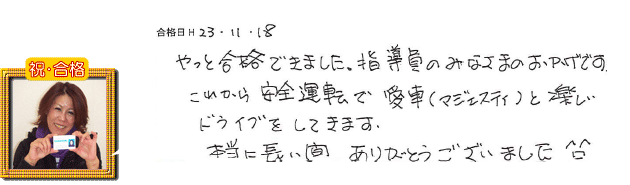 合格日 H 23・11・18
祝・合格
やっと合格できました。指導員のみなさまのおかげです。
これから安全運転で愛車(マジェスティ)と楽しい
ドライブをしてきます。
本当に長い間 ありがとうございました ^^